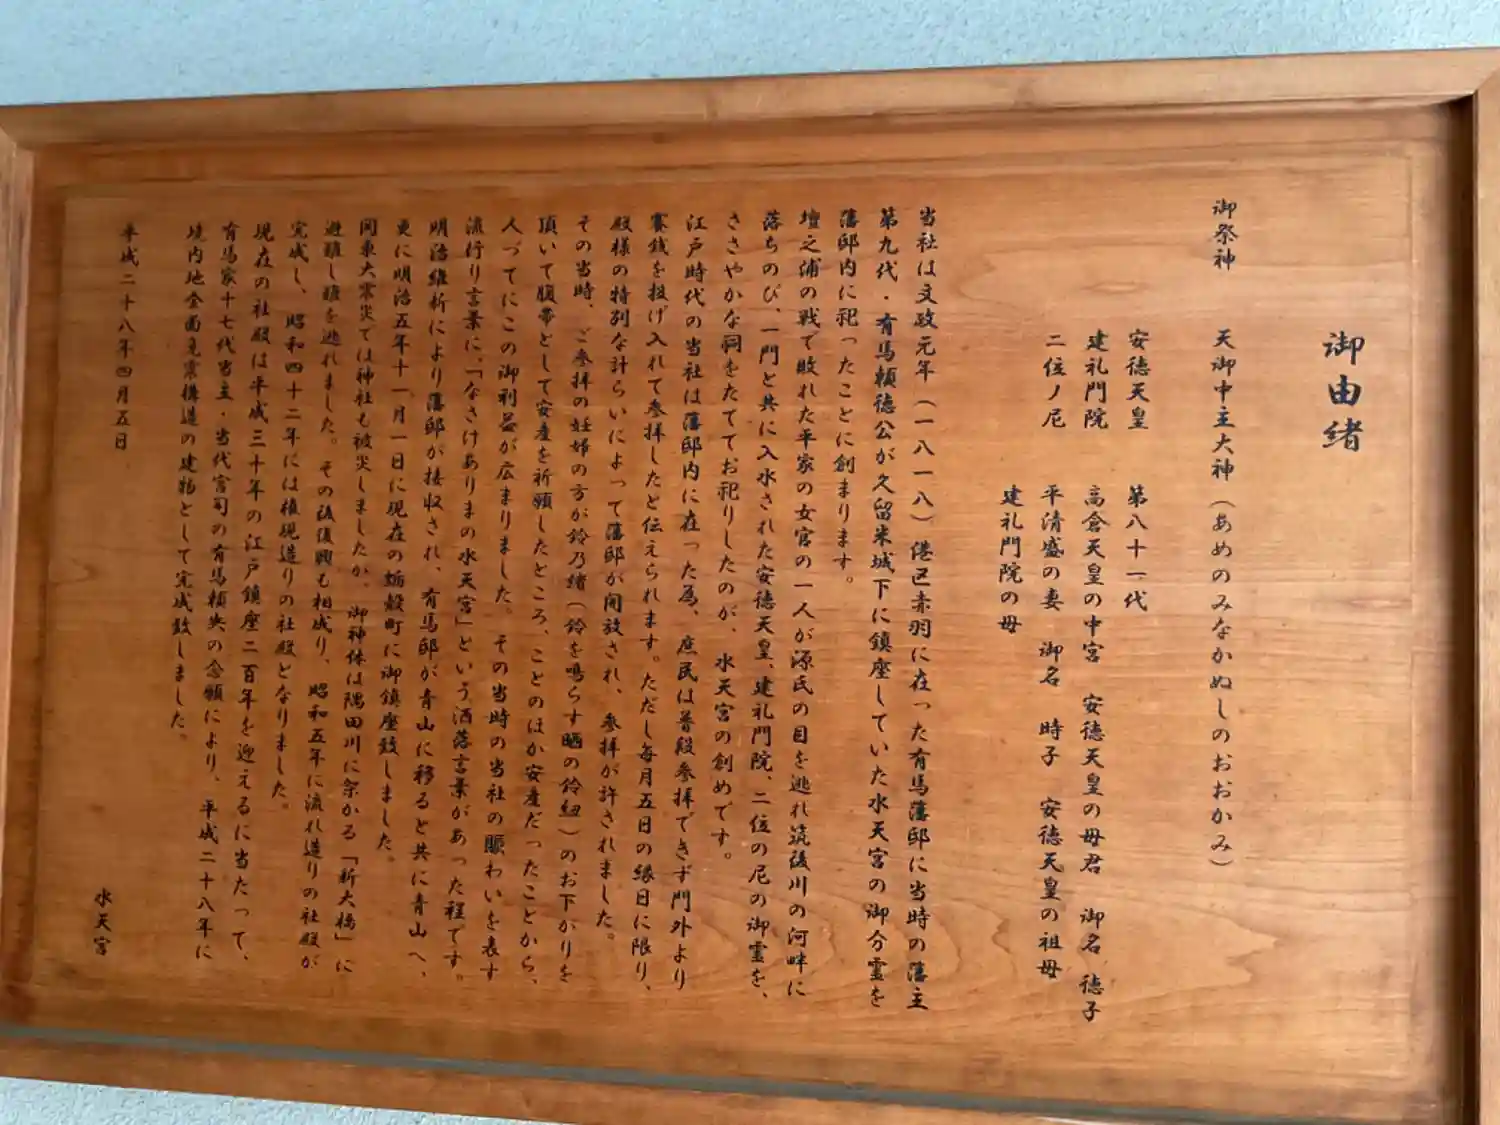 御由緒
御祭神　天御中主大神（あめのみなかぬしのおおかみ）
安徳天皇　第八十一代
建礼門院　高倉天皇の中宮　安徳天皇の母君　御名　徳子
二位ノ尼　平清盛の妻　御名　時子　安徳天皇の祖母
建礼門院の母
当社は文政元年（一八一八）港区赤羽に在った有馬藩邸に当時の藩主
第九代・有馬頼徳公が久留米城下に鎮座していた水天宮の御分霊を
藩邸内に祀ったことに創まります。
壇之浦の戦で敗れた平家の女官の一人が源氏の目を逃れ筑後川の河畔に
落ちのび、一門と共に入水された安徳天皇、建礼門院、二位の尼の御霊を、
ささやかな祠をたててお祀りしたのが、水天宮の創めです。
江戸時代の当社は藩邸内に在った為、庶民は普段参拝できず門外より
賽銭を投げ入れて参拝したと伝えられます。ただし毎月五日の縁日に限り、
殿様の特別な計らいによって藩邸が開放され、参拝が許されました。
その当時、ご参拝の妊婦の方が鈴乃緒（鈴を鳴らす晒の鈴紐）のお下がりを
頂いて腹帯として安産を祈願したところ、ことのほか安産だったことから、
人づてにこの御利益が広まりました。その当時の当社の賑わいを表す
流行り言葉に、「なさけありまの水天宮」という洒落言葉があった程です。
明治維新により藩邸が接収され、有馬邸が青山に移ると共に青山へ、
更に明治五年十一月一日に現在の蛎殻町に御鎮座致しました。
関東大震災では神社も被災しましたが、御神体は隅田川に奈かる「新大橋」に
避難し難を逃れました。その後復興も相成り、昭和五年に流れ造りの社殿が
完成し、昭和四十二年には権現造りの社殿となりました。
現在の社殿は平成三十年の江戸鎮座二百年を迎えるに当たって、
有馬家十七代当主・当代宮司の有馬頼央の念願により、平成二十八年に
境内地全面免震構造の建物として完成致しました。
平成二十八年四月五日
水天宮